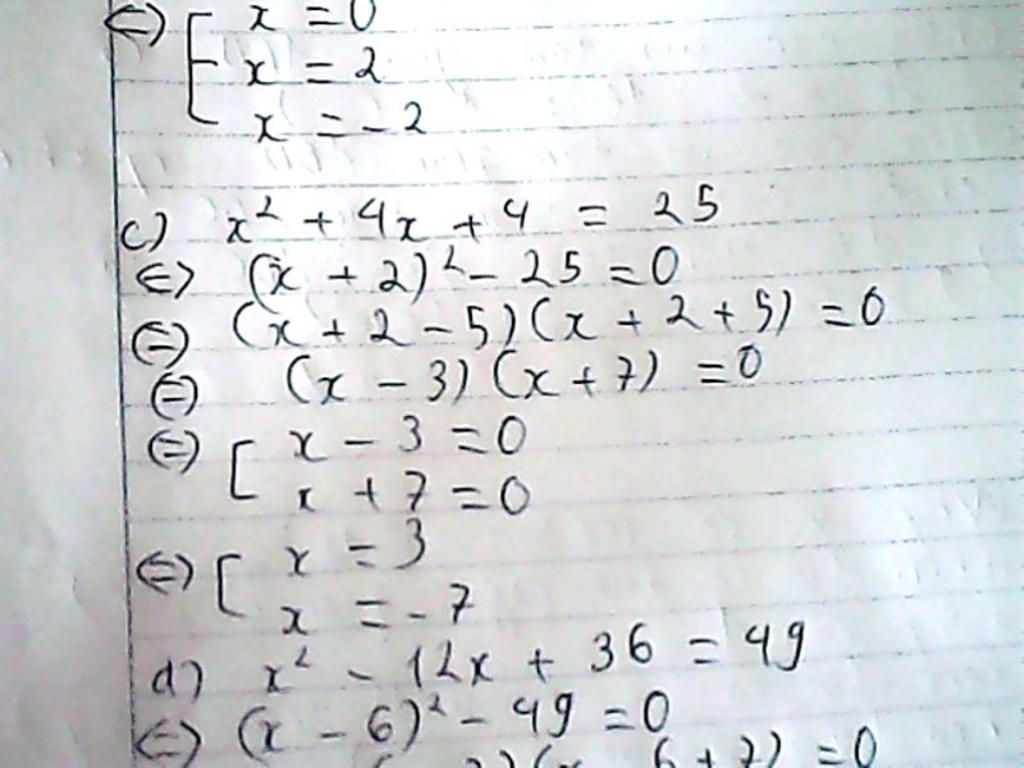 ⇔ [ x = 0
x = 2
x = -2
c) x² + 4x + 4 = 25
⇔ (x + 2)² - 25 = 0
⇔ (x + 2 - 5)(x + 2 + 5) = 0
⇔ (x - 3)(x + 7) = 0
⇔ [ x - 3 = 0
x + 7 = 0
⇔ [ x = 3
x = -7
d) x² - 12x + 36 = 49
⇔ (x - 6)² - 49 = 0
6 + 7) = 0